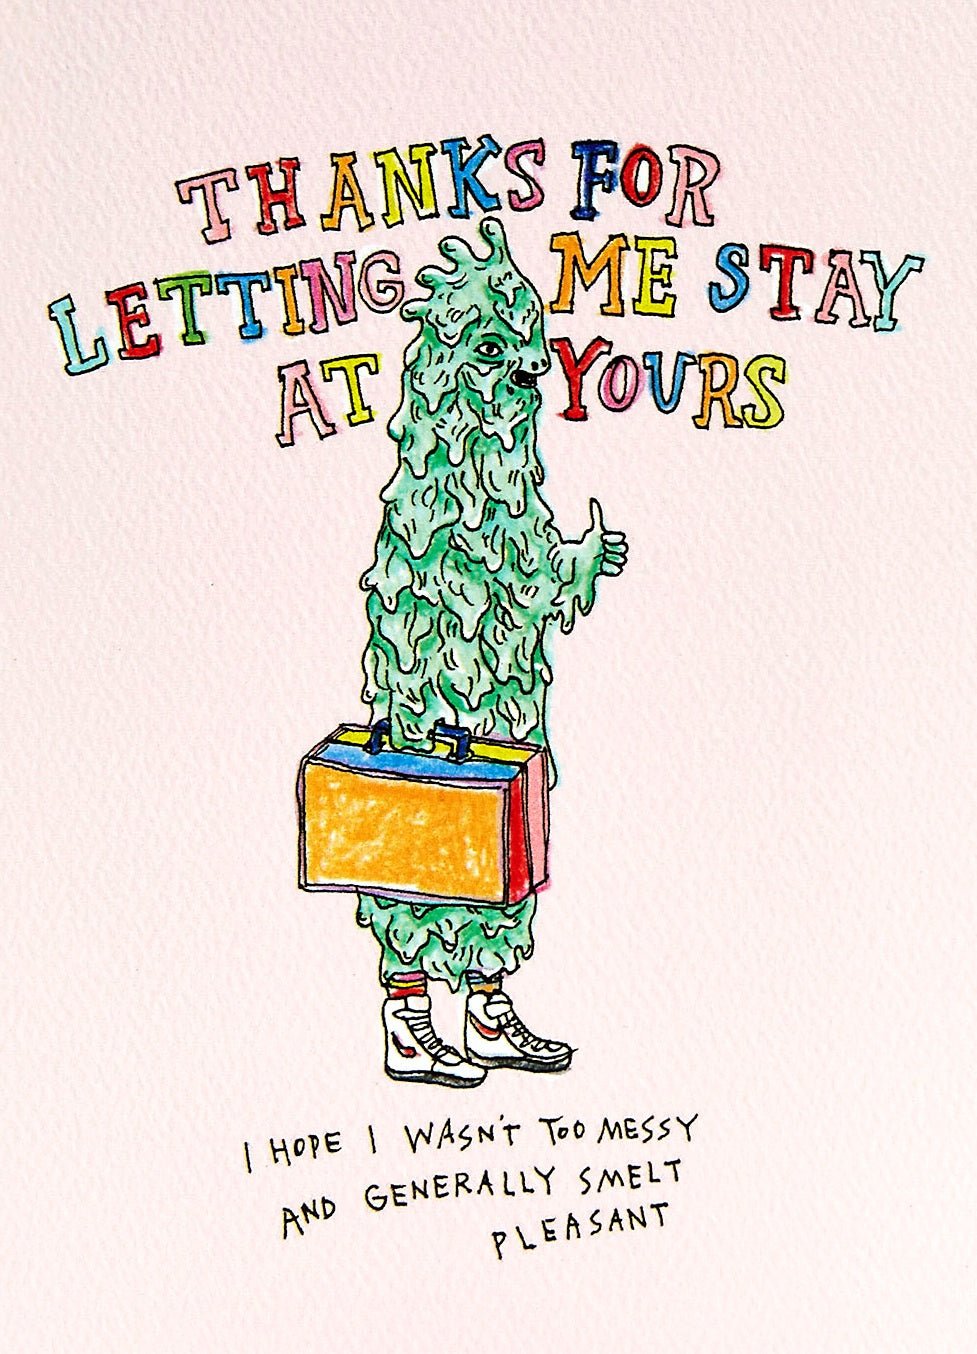 THANKS FOR
LETTING ME STAY
AT YOURS
I HOPE I WASN'T TOO MESSY
AND GENERALLY SMELT
PLEASANT